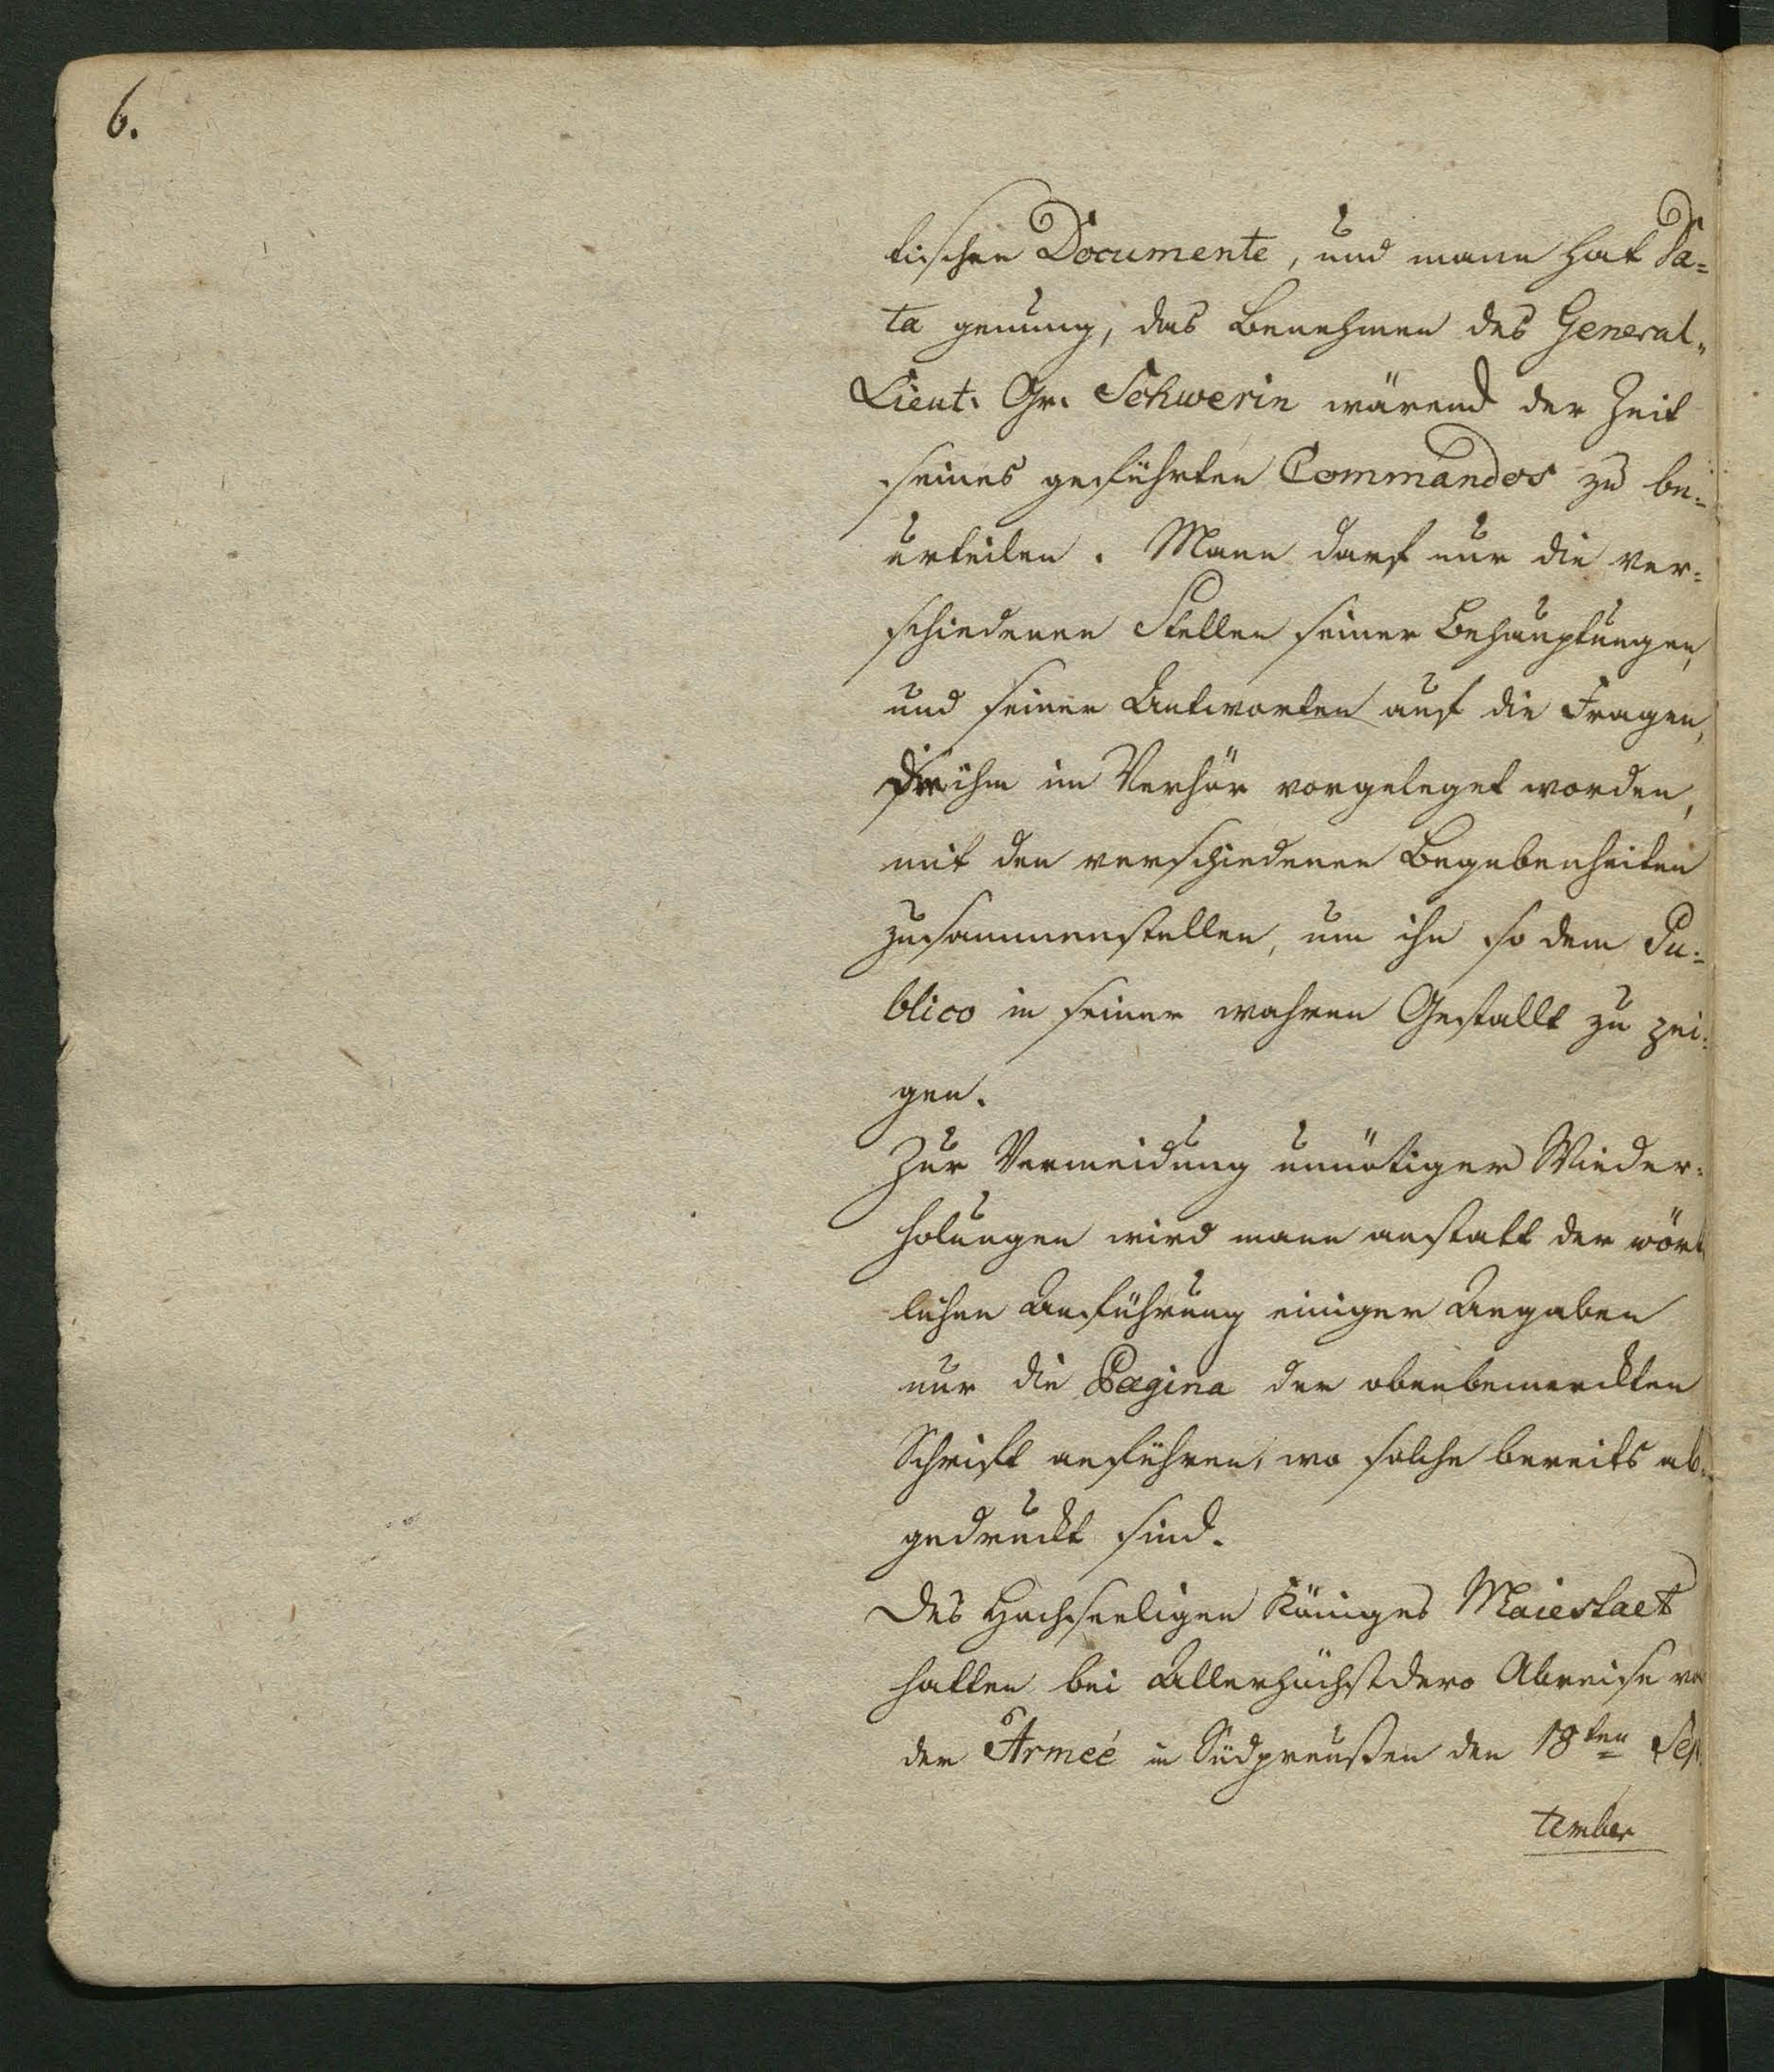 6.
tischen Documente, und mann hat Da=
ta genung, das Benehmen des General„
Lieut. Gr. Schwerin wärend der Zeit
seines geführten Commandos zu be=
urteilen. Mann darf nur die ver=
schiedenen Stellen seiner Behauptungen,
und seiner Antworten auf die Fragen,
die ihm im Verhör vorgeleget worden,
mit den verschiedenen Begebenheiten
zusammenstellen, um ihn so dem Pu=
blico in seiner wahren Gestallt zu zei=
gen.
Zur Vermeidung unnötiger Wieder=
holungen wird mann anstatt der wört
lichen Anführung einiger Angaben
nur die Pagina der obenbemerckten
Schrift anführen, wo solche bereits ab=
gedruckt sind.
Des Hochseeligen Königes Maiestaet
hatten bei Allerhöchstdero Abreise von
der Armeé in Südpreußen den 18ten Sep
tember